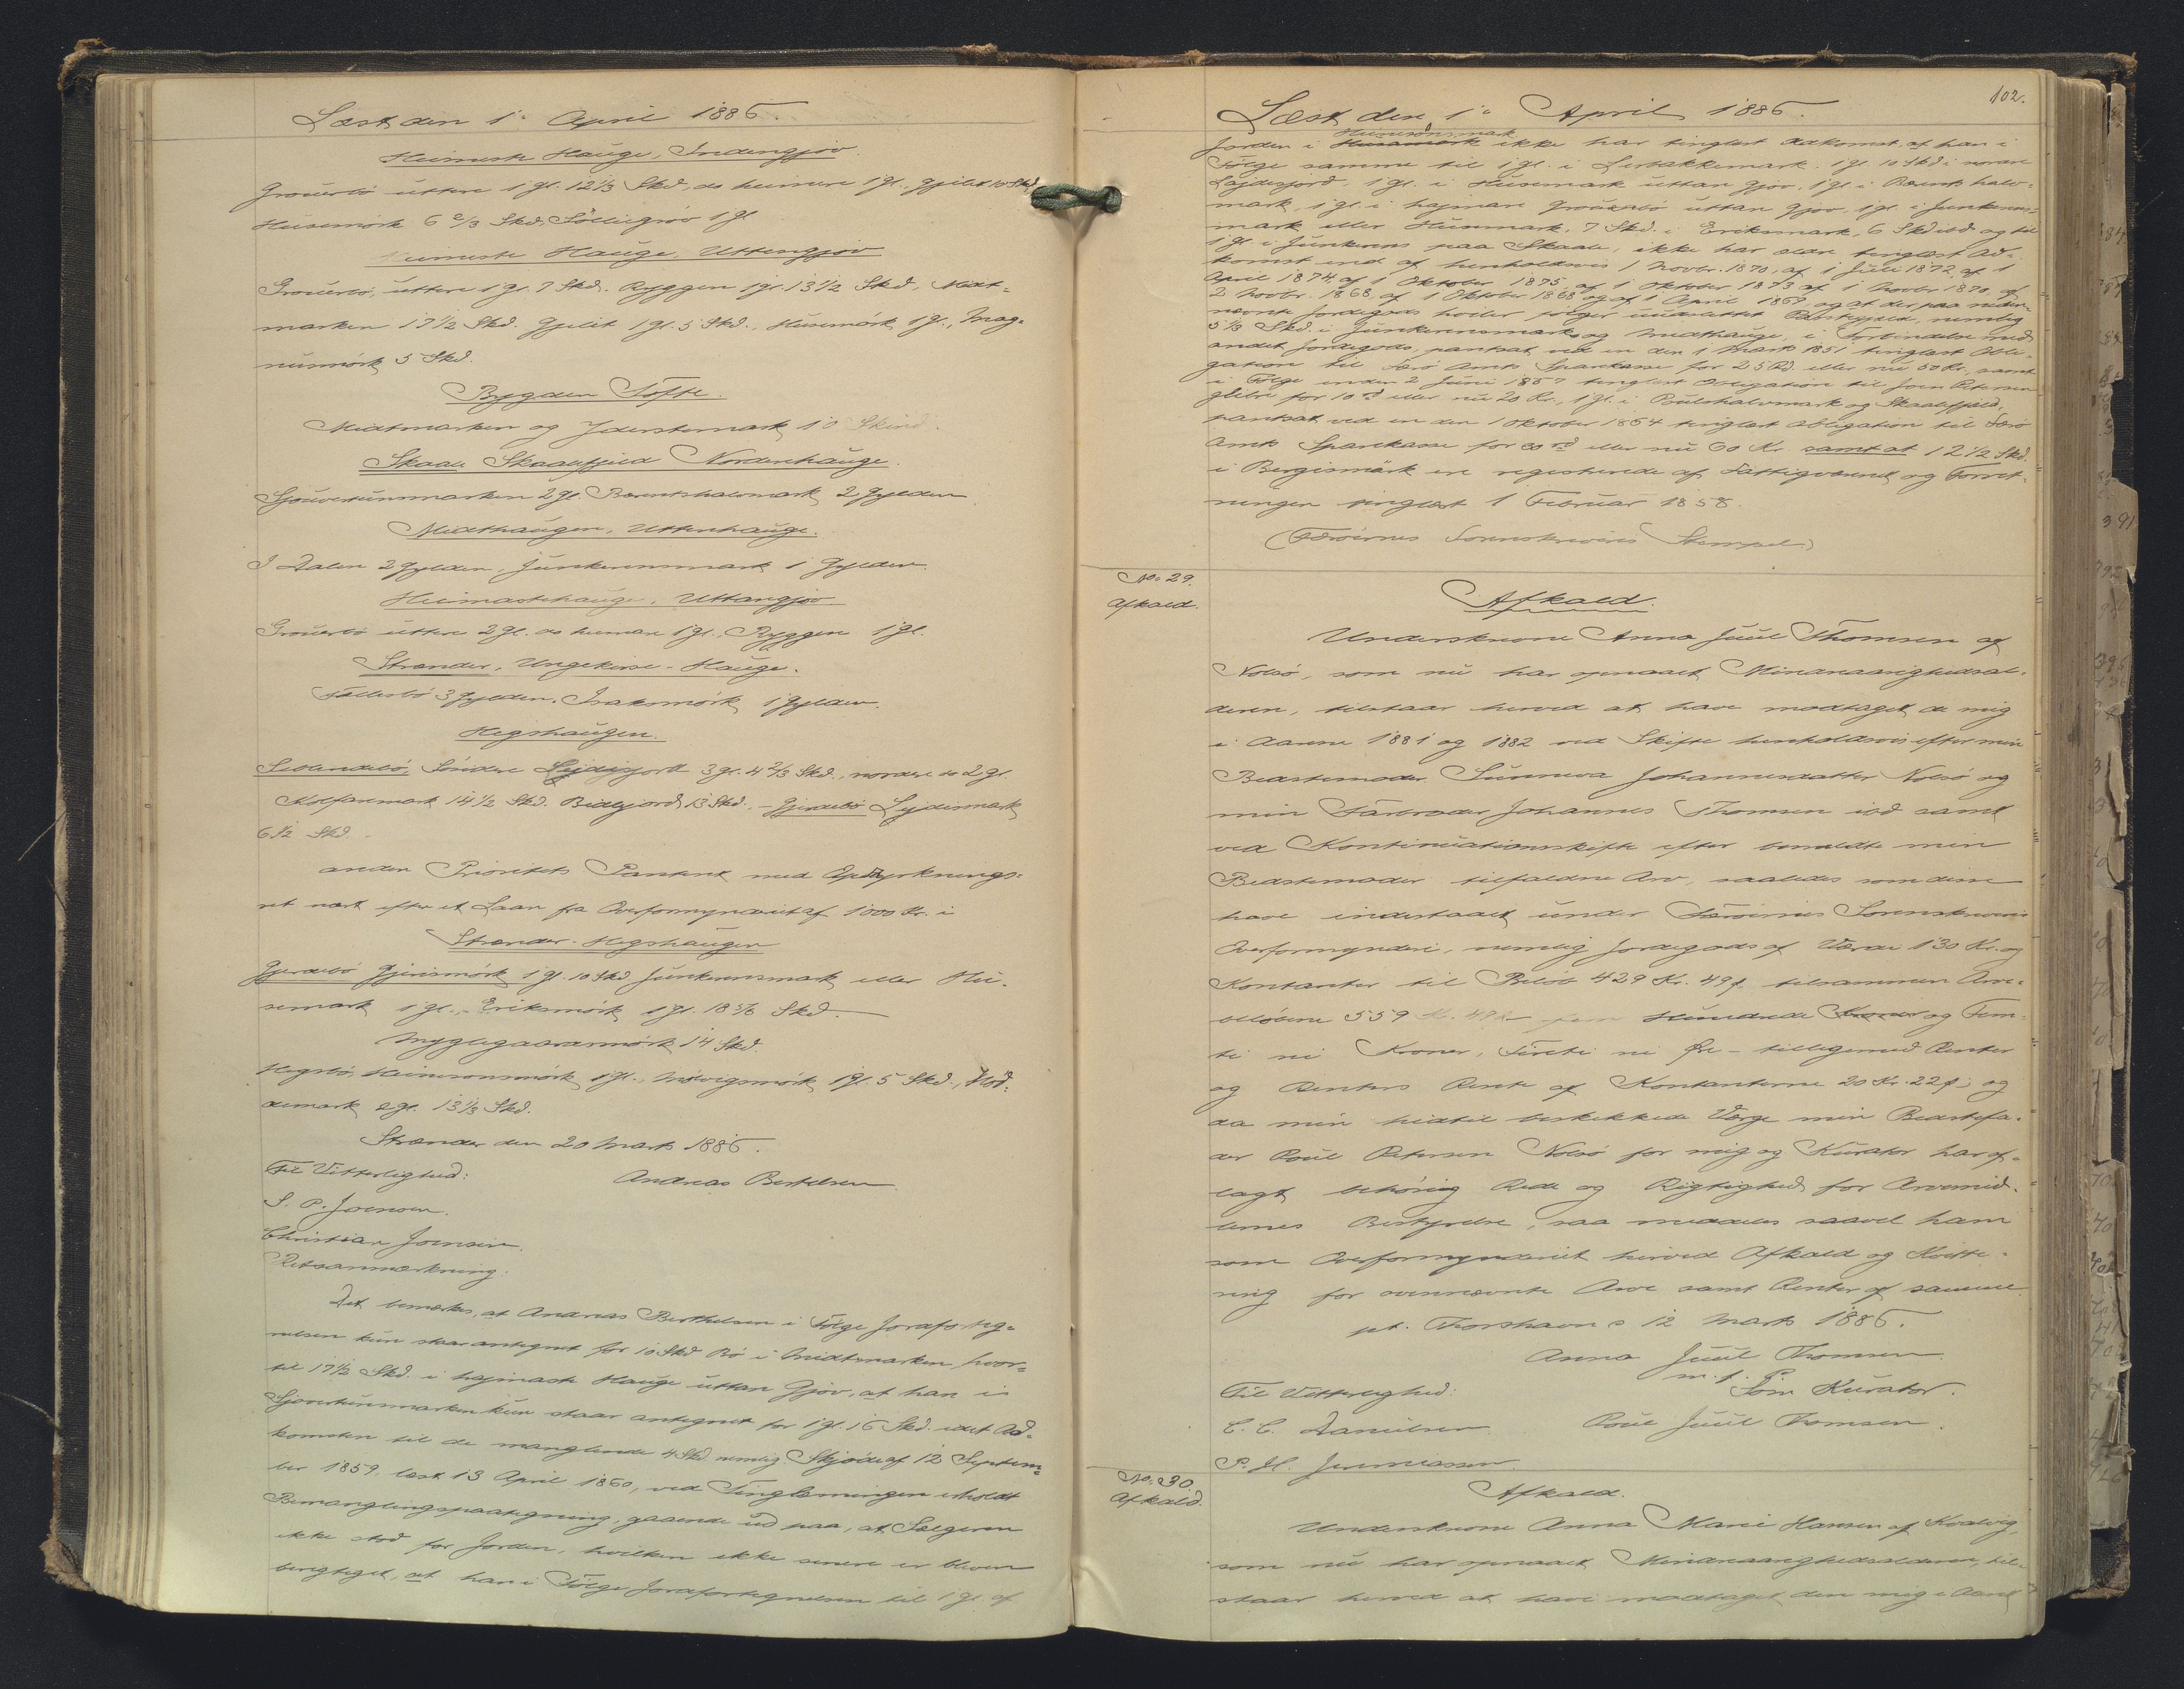 Læst den 1ᵉ April 1886.
Heimeste Hauge, Indengjov.
Grouerbö uttere 1 gl. 12⅓ Skd, do heimere 1 gl., Gjilit 10 Skd,
Husemörk 6⅔ Skd, Söltiegröv 1 gl
Heimeste Hauge, Uttengjov
Grouerbö, uttere 1 gl. 7 Skd. Ryggen 1 gl. 13½ Skd, Midt-
marken 17½ Skd. Gjilit 1 gl. 5 Skd., Husemörk 1 gl., Mag-
nusmörk 5 Skd.
Bygden Töfte.
Midtmarken og Yderstemark 10 Skind.
Skaale Skaalefjeld Nordenhauge.
Sjouvertunsmarken 2 gl Bærentshalvmark 2 Gylden
Midthaugen, Uttenhauge.
I Dalen 2 Gylden, Junkerensmark 1 Gylden.
Heimastehauge, Uttangjov
Grouerbö uttere 2 gl. do heimare 1 gl., Ryggen 1 gl.
Strænder, Ungekirse-Hauge.
Fællesbö 3 Gylden, Isaksmörk 1 Gylden.
Hegshaugen.
Selendebö, Söndere Lejdisjortt 3 gl. 4⅔ Skd., nordere do 2 gl.
Kolfaremark 14½ Skd. Bidlgjord 13 Skd., - Gjerdebö Lejdesmark
6½ Skd.
anden Prioritets Panteret med Opryknings-
ret næst efter et Laan fra Overformynderiet af 1000 Kr. i
Strænder-Hegshaugen
Gjerdebö Gjirismörk 1 gl. 10 Skd Junkerensmark eller Hu-
semark 1 gl., - Eriksmörk 1 gl. 18⅚ Skd.
Mygligaararmörk 14 Skd.
Hegsbö, Heinesonsmörk 1 gl., Mölvegsmörk 1 gl. 5 Skd., Höd-
demark 2 gl. 13⅓ Skd.
Strænder den 20 Marts 1886.
Til Vitterlighed: Andreas Berthelsen
S. P. Joensen.
Christian Joensen.
Retsanmærkning.
Det bemærkes, at Andreas Berthelsen i Fölge Jordforteg-
nelsen kun staar antegnet for 10 Skd Bö i Midtmarken hvor-
til 17½ Skd. i hejmaste Hauge uttan Gjov, at han i
Sjovertunsmarken kun staar antegnet for 1 gl. 16 Skd. idet Ad-
komsten til de manglende 4 Skd nemlig Skjöde af 12 Septem-
ber 1859, læst 13 April 1860, ved Tinglæsningen erholdt
Bemanglingspaategning, gaaende ud paa, at Sælgeren
ikke stod for Jorden, hvilken ikke senere er bleven
berigtiget, at han i Fölge Jordfortegnelsen til 1 gl. af
102.
Læst den 1ᵉ April 1886.
Heinesönsmark
Jorden i Husamörk ikke har tinglæst Adkomst, at han i
Fölge samme til 1 gl. i Lertakkemark. 1 gl. 10 Skd i nordre
Lajdesjord, 1 gl. i Husemark uttan gjov, 1 gl. i Bærents halv-
mark, 1 gl. i hejmare Grouerbö uttan Gjov, 1 gl. i Junkerens-
mark eller Husemark, 7 Skd. i Eriksmark, 6 Skd ibd. og til
1 gl. i Junkerens paa Skaale, ikke har ældre tinglæst Ad-
komst end af henholdsvis 1 Novbr. 1870, af 1 Juli 1872, af 1
April 1874, af 1 Oktober 1875, af 1 Oktober 1873 af 1 Novbr 1870, af
2 Novbr. 1868, af 1 Oktober 1868 og af 1 April 1867, og at der paa neden-
nævnte Jordegods hviler forger uudslettet Pantegjæld, nemlig
5⅓ Skd. i Junkerensmark og Midthauge, i Forbindelse med
andet Jordegods, pantsat ved en den 1 Marts 1851 tinglæst Obli-
gation til Færö Amts Sparekasse for 25 Rd. eller nu 50 Kr., samt
i Fölge anden 2 Juni 1857 tinglæst Obligation til Joen Petersen
Glibre for 10 rd eller nu 20 Kr., 1 gl. i Poulshalvmark og Skaalefjeld,
pantsat ved en den 1 Oktober 1864 tinglæst Obligation til Færö
Amts Sparekasse for 30 rd eller nu 60 Kr. samt at 12½ Skd.
i Bergismörk ere registrerede af Fattigvæsenet og Forret-
ningen tinglæst 1 Februar 1858.
(Færöernes Sorenskriveris Stempel)
No. 29.
Afkald.
Afkald.
Underskrevne Anna Juul Thomsen af
Nolsö, som nu har opnaaet Mindreaarighedsal-
deren, tilstaar herved at have modtaget de mig
i Aarene 1881 og 1882 ved Skifte henholdsvis efter min
Bedstemoder Sunneva Johannesdatter Nolsö og
min Farbroder Johannes Thomsen ibd samt
ved Kontinuationsskifte efter bemeldte min
Bedstemoder tilfaldne Arv, saaledes som disse
have indestaaet under Færöernes Sorenskriveris
Overformynderi, nemlig Jordegods af Værdi 130 Kr. og
Kontanter til Belöb 429 Kr. 49 ø. tilsammen Arve-
belöbene 559 Kr. 49 ø - fem Hundrede Kroner og Fem-
ti ni Kroner, Firti ni Øre - tilligemed Renter
og Renters Rente af Kontanterne 20 Kr. 22 ø; og
da min hidtil beskikkede Værge min Bedstefa-
der Poul Petersen Nolsö for mig og Kurator har af-
lagt behörig Rede og Rigtighed for Arvemid-
lernes Bestyrelse, saa meddeles saavel ham
som Overformynderiet herved Afkald og Kvitte-
ring for ovennævnte Arv samt Renter af samme
pt. Thorshavn d 12 Marts 1886.
Anna Juul Thomsen
m. f. P.
Til Vitterlighed: Som Kurator.
C. C. Danielsen. Poul Juul Thomsen.
P. H. Jeremiassen
No. 30.
Afkald.
Afkald.
Underskrevne Anna Marie Hansen af Kvalvig,
som nu har opnaaet Mindreaarighedsalderen, til-
staar herved at have modtaget den mig i Aaret